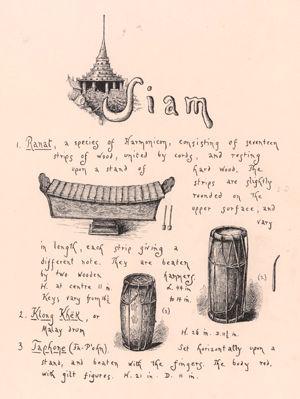 Siam
1. Ranat, a species of Harmonicon, consisting of seventeen
strips of wood, united by cords, and resting
upon a stand of hard wood. The
strips are slightly
rounded on the
upper surface, and
vary
in length, each strip giving a
different note. They are beaten
by two wooden hammers.
H. at centre 11 in. L. 44 in
Keys vary from 14½ to 14 in.
2. Klong Khëk, or
Malay drum H. 26 in. D. 11½ in.
(2)
(3)
3 Taphone (Ta-P'ohn). Set horizontally upon a
stand, and beaten with the fingers. The body red,
with gilt figures. H. 21 in. D. 11 in.